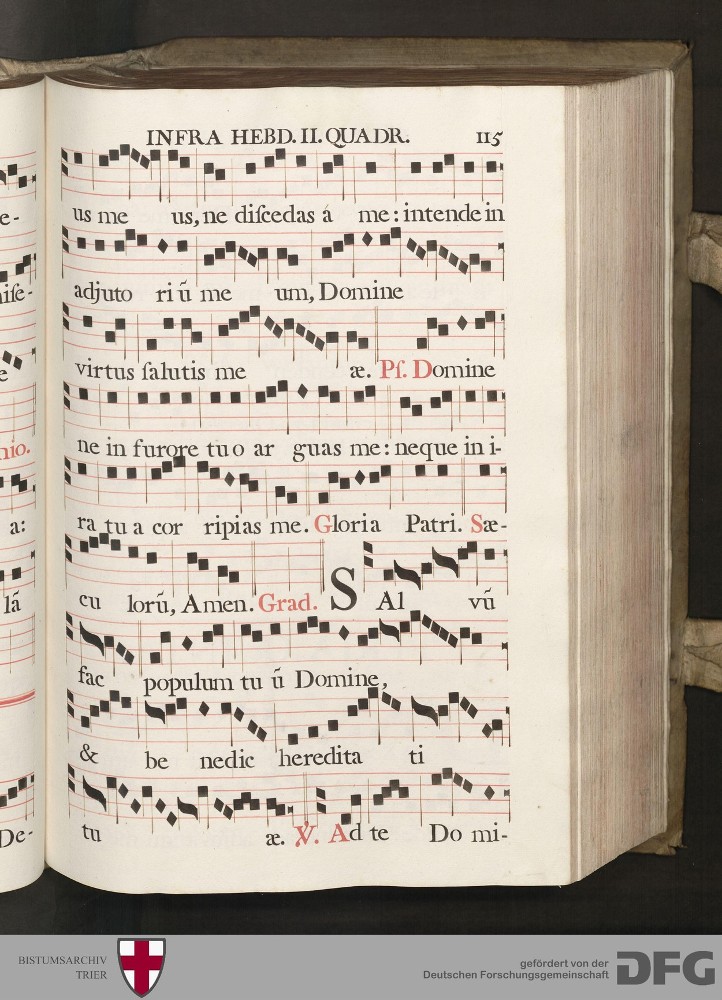 INFRA HEBD. II. QUADR. 115
us me us, ne diſcedas á me: intende in
adjuto ri ũ me um, Domine
virtus ſalutis me æ. Pſ. Domine
ne in furore tuo ar guas me: neque in i-
ra tu a cor ripias me. Gloria Patri. Sæ-
cu lorũ, Amen. Grad. SAl vũ
fac populum tu ũ Domine,
& be nedic heredita ti
tu æ. V. Ad te Do mi-
e-
niſe-
e
nio.
a:
lã
De-
BISTUMSARCHIV
TRIER
gefördert von der
Deutschen Forschungsgemeinschaft
DFG